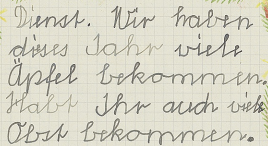 Dienst. Wir haben
dieses Jahr viele
Äpfel bekommen.
Habt Ihr auch viele
Obst bekommen.